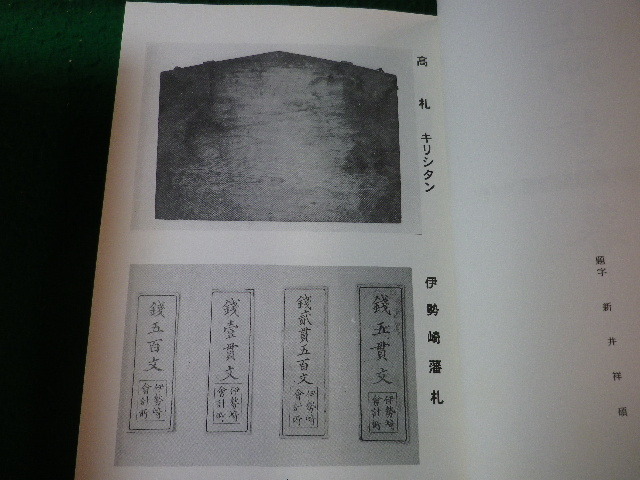 高札 キリシタン
伊勢崎藩札
錢五貫文
伊勢崎
會計所
錢貳貫五百文
伊勢崎
會計所
錢壹貫文
伊勢崎
會計所
錢五百文
伊勢崎
會計所
題字 新井祥碩